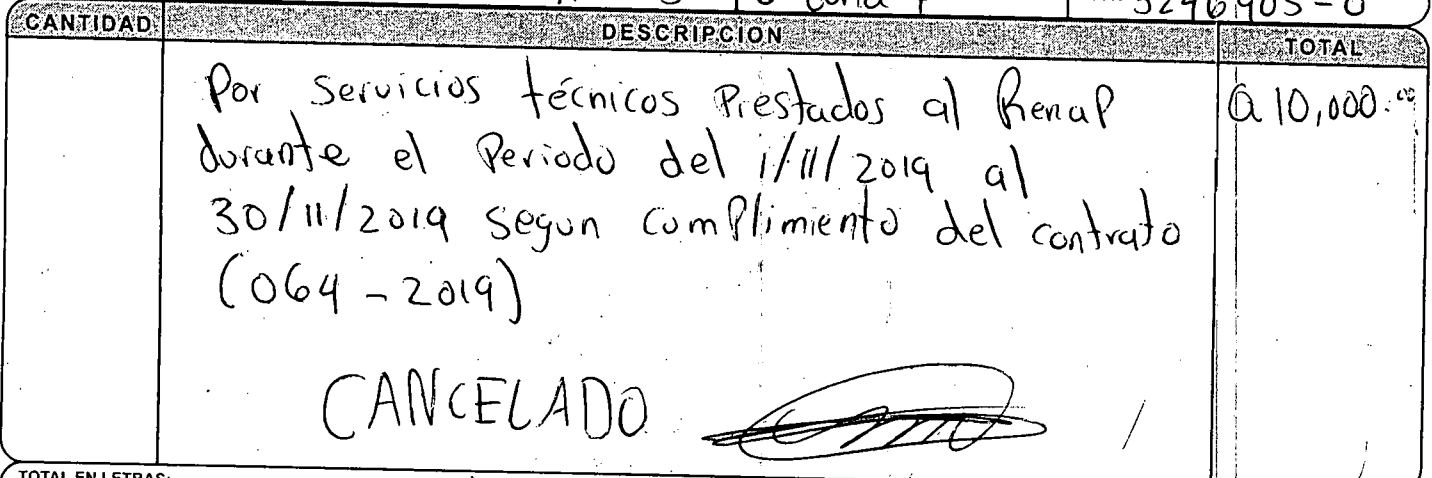 5296905-0
CANTIDAD DESCRIPCION TOTAL
Por servicios técnicos Prestados al Renap Q 10,000.00
durante el Periodo del 1/11/2019 al
30/11/2019 segun cumplimiento del contrato
(064-2019)
CANCELADO
TOTAL EN LETRAS: